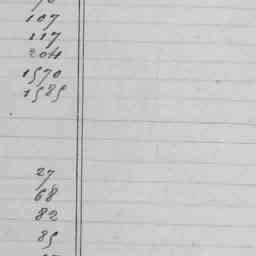 107
117
204
1570
1585
27
68
82
85